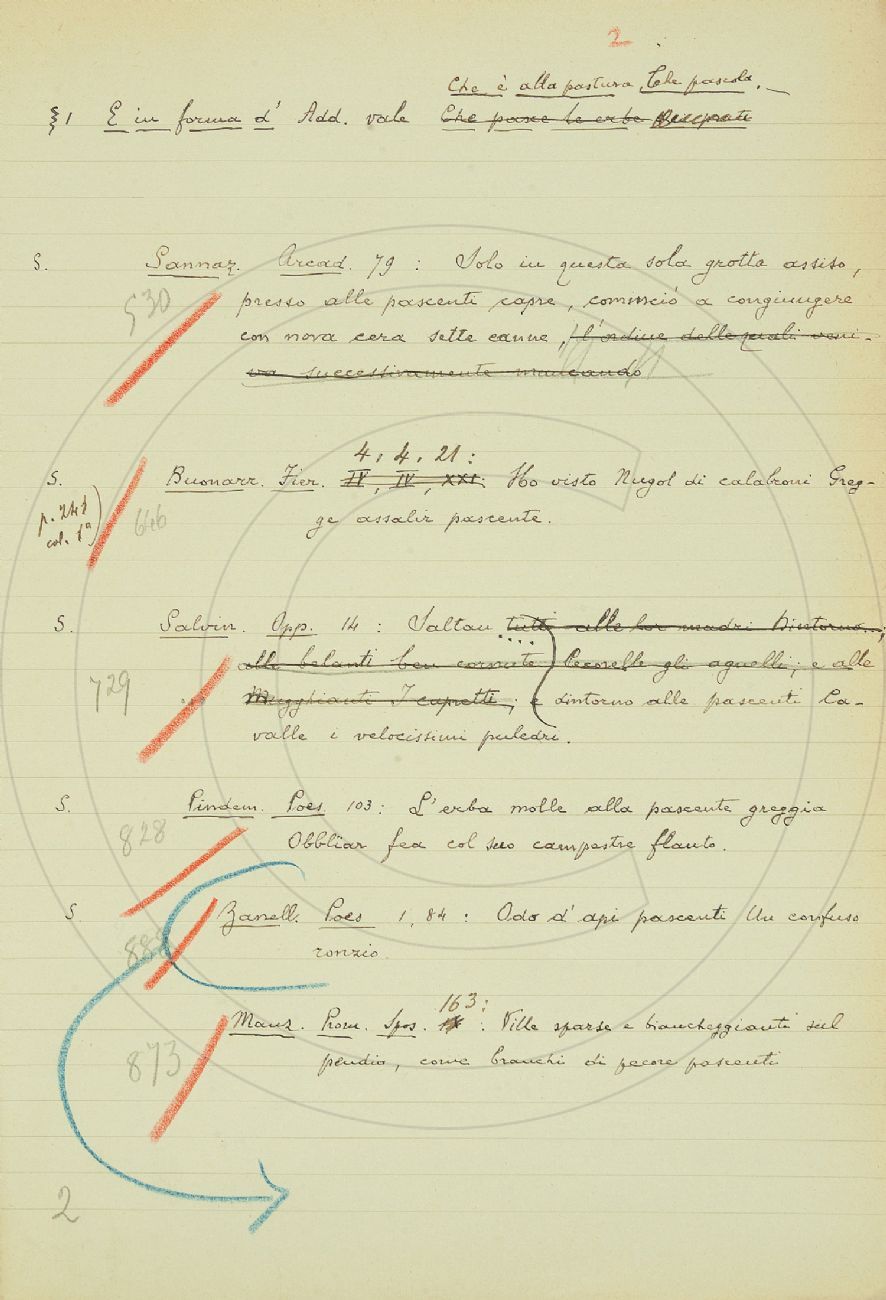 2
Che è alla pastura, Che pascola.
§ 1 E in forma d' Add. vale Che pasce le erbe
S. Sannaz. Arcad. 79 : Solo in questa sola grotta assiso,
530 presso alle pascenti capre, cominciò a congiungere
con nova cera sette canne, l'ordine delle quali veni-
va successivamente mancando
4, 4, 21:
S. Buonarr. Fier. IV, IV, XXI: Ho visto Nugol di calabroni Greg-
p. 241
col. 1ª) 646 ge assalir pascente.
S. Salvin. Opp. 14 : Saltan tutti alle lor madri Dintorno...;
729 alle belanti ben cornute Pecorelle gli agnelli; e alle
Mugghianti I capretti; e dintorno alle pascenti Ca-
valle i velocissimi puledri.
S. Pindem. Poes. 103: L'erba molle alla pascente greggia
828 Obblïar fea col suo campestre flauto.
S. Zanell. Poes 1, 84 : Odo d'api pascenti Un confuso
888 ronzio.
163:
Manz. Prom. Spos. : Ville sparse e biancheggianti sul
873 pendio, come branchi di pecore pascenti
2